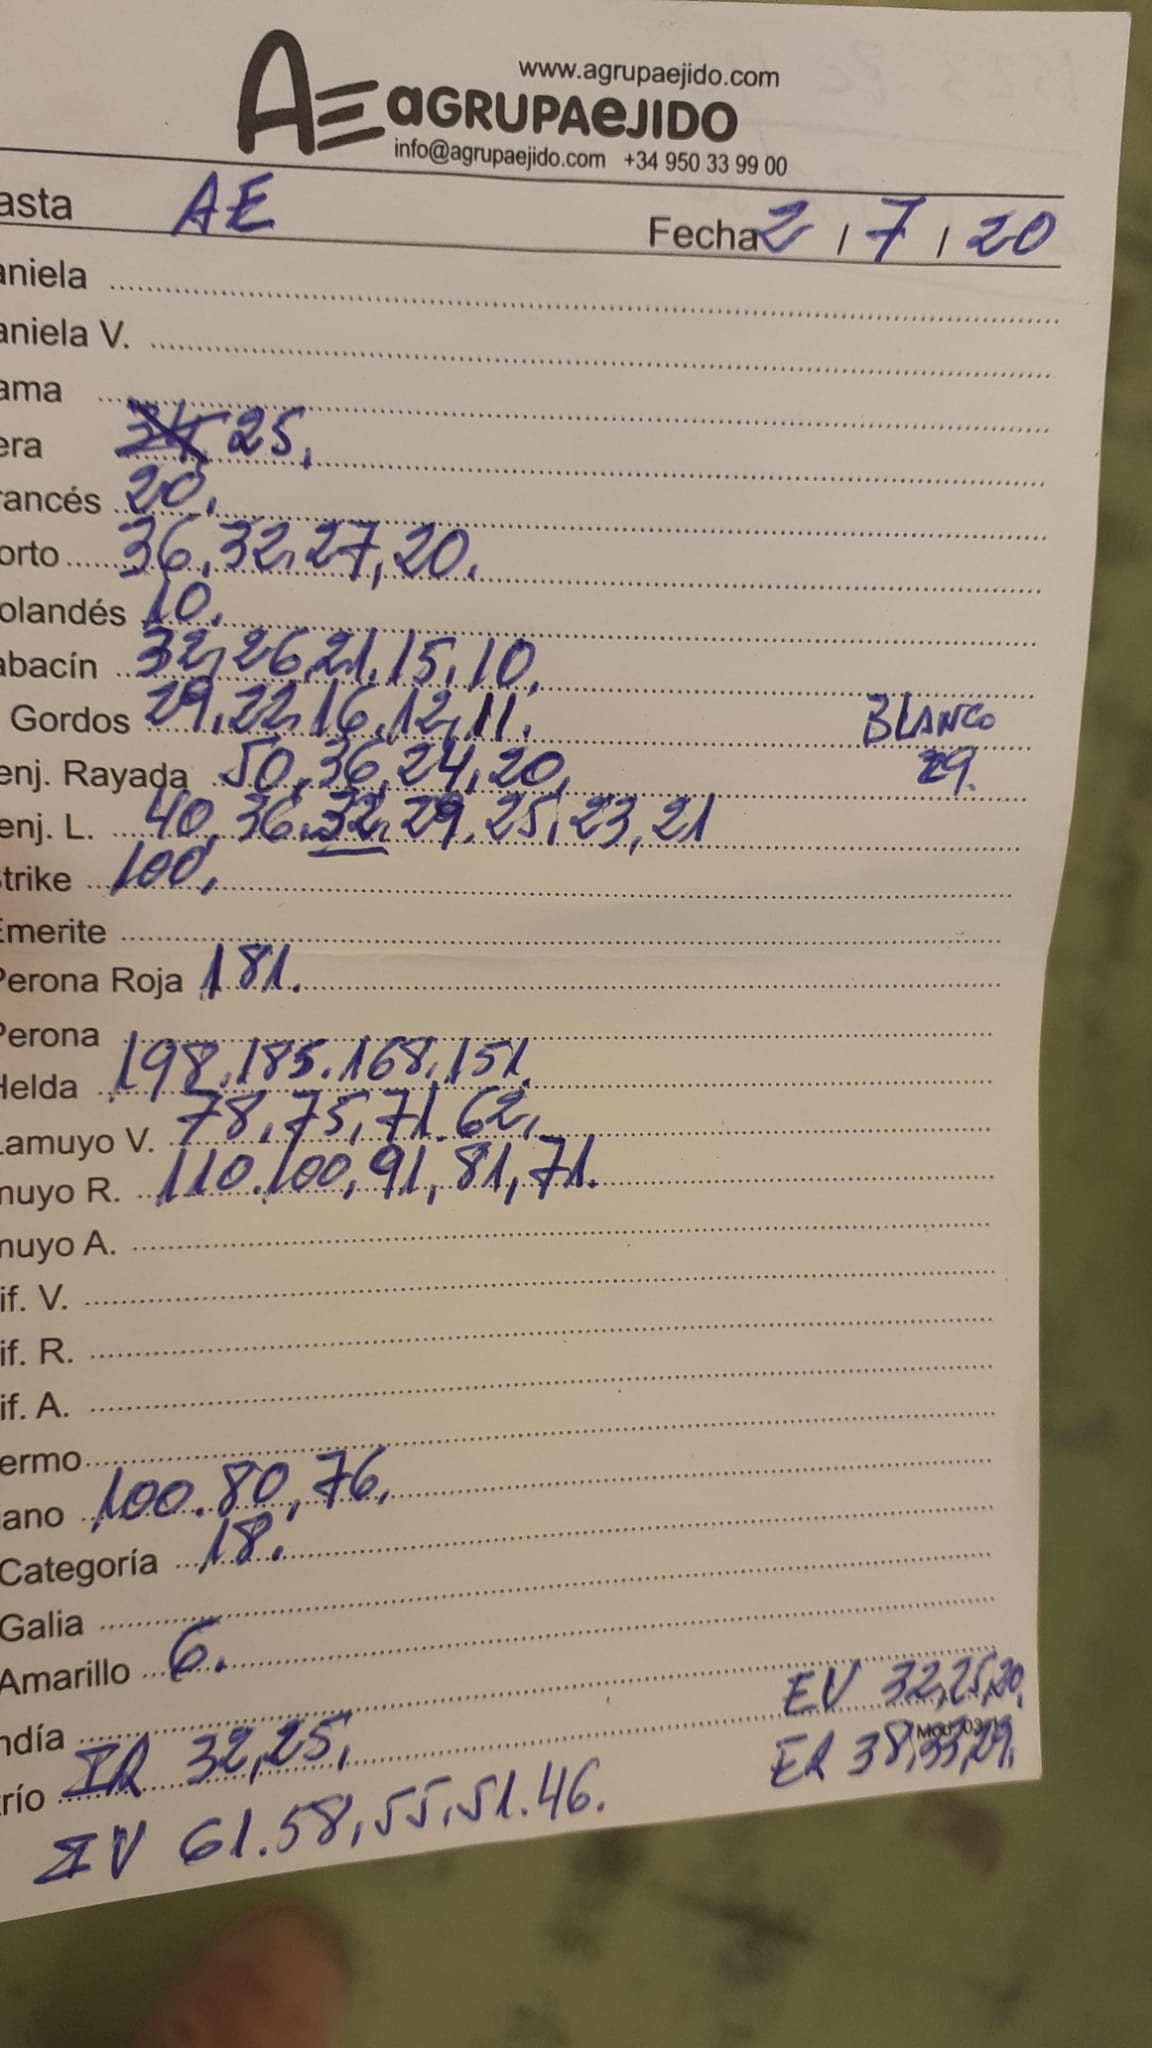 www.agrupaejido.com
AE aGRUPAeJIDO
info@agrupaejido.com +34 950 33 99 00
asta AE Fecha 2 / 7 / 20
aniela
aniela V.
ama
era 25.
rancés 20.
orto 36, 32, 27, 20.
olandés 10.
abacín 32, 26, 21, 15, 10,
Gordos 29, 22, 16, 12, 11. BLANCO
enj. Rayada 50, 36, 24, 20, 29.
enj. L. 40, 36, 32, 29, 25, 23, 21
trike 100,
Emerite
Perona Roja 181.
Perona
Helda 198, 185. 168, 151,
Lamuyo V. 78, 75, 71. 62,
muyo R. 110. 100, 91, 81, 71.
muyo A.
if. V.
if. R.
if. A.
ermo
iano 100. 80, 76,
Categoría 18.
Galia
Amarillo 6.
ndía EV 32, 25, 20,
río IR 32, 25, ER 38, 33, 29.
IV 61. 58, 55, 51. 46.